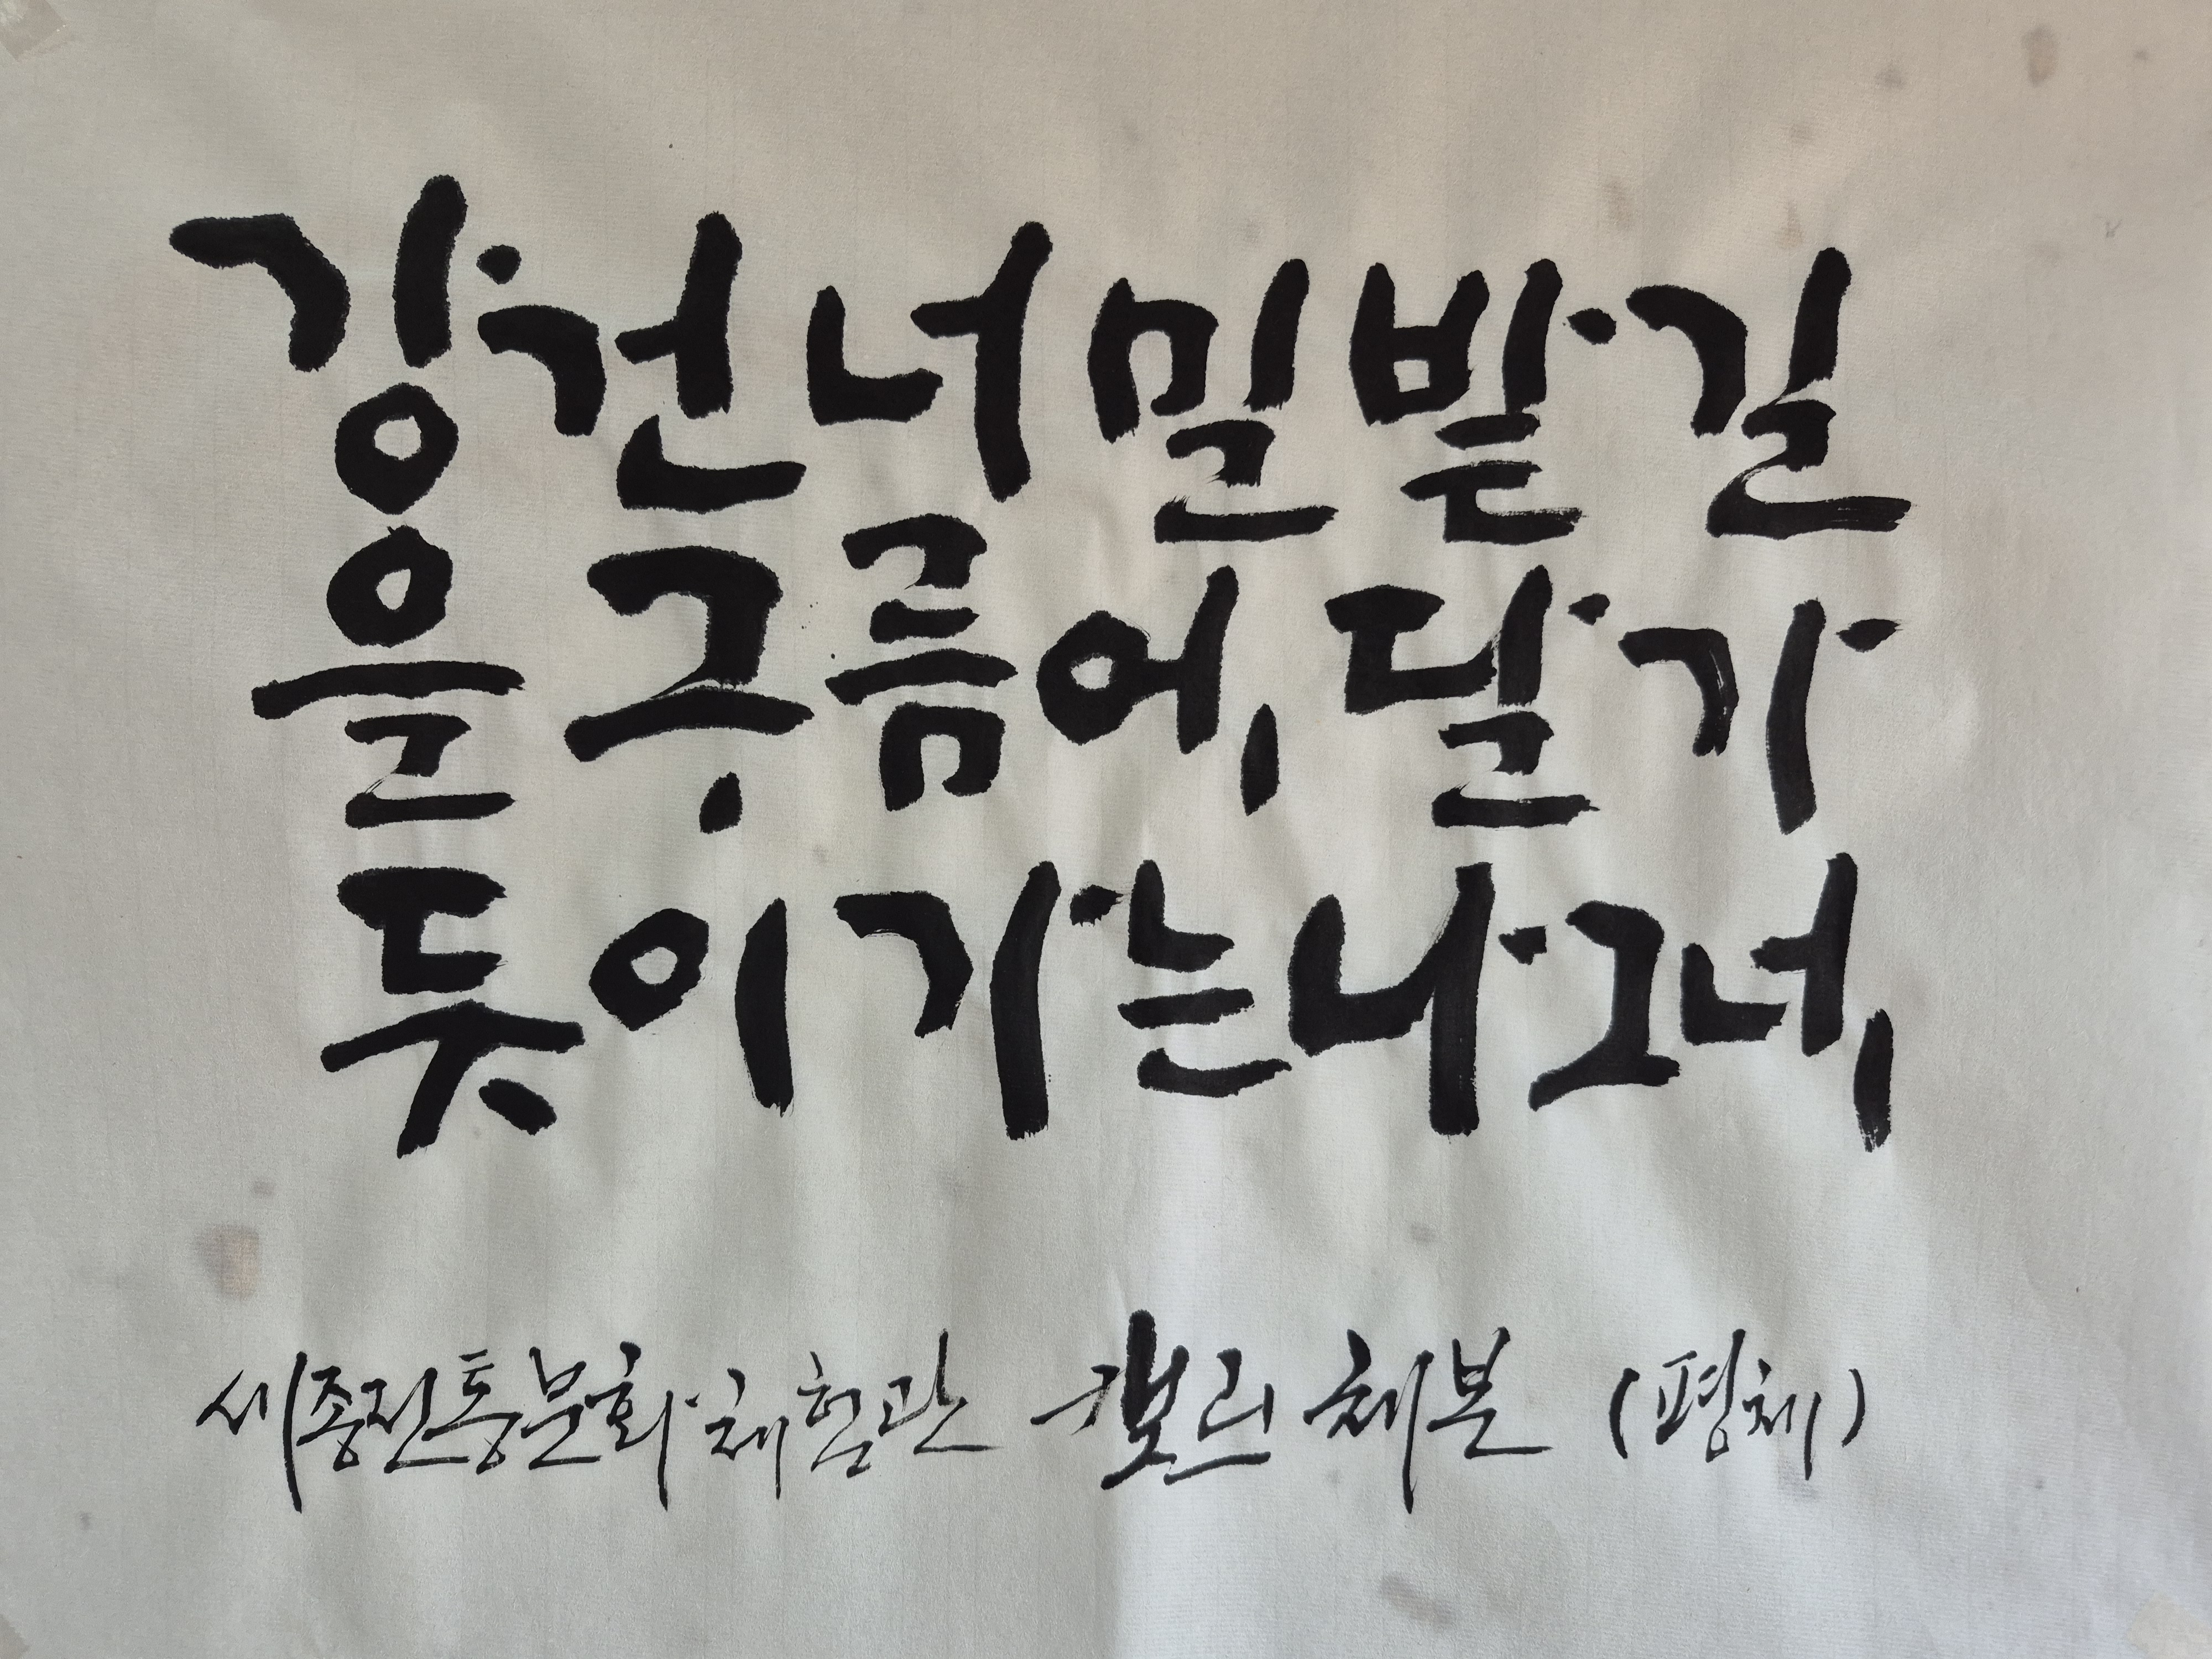 강 건너 밀밭 길
을 구름에 달 가
듯이 가는 나그네
세종전통문화체험관 캘리 체본 (평체)